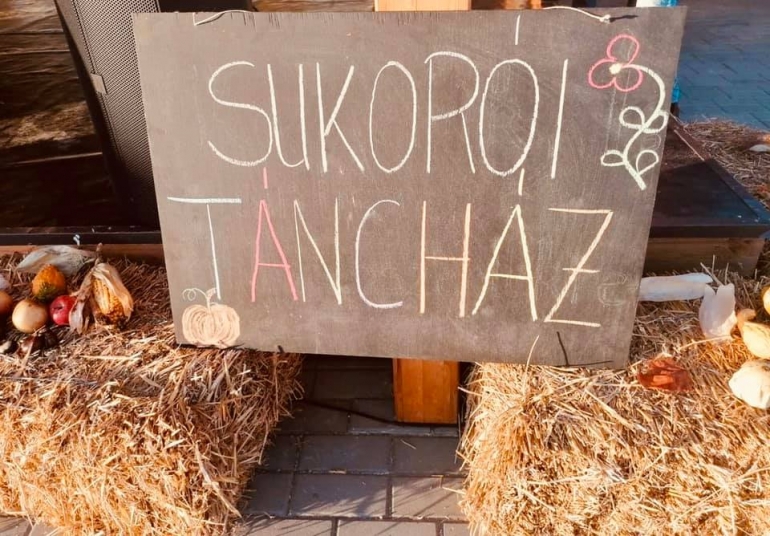 SUKORÓI
TÁNCHÁZ